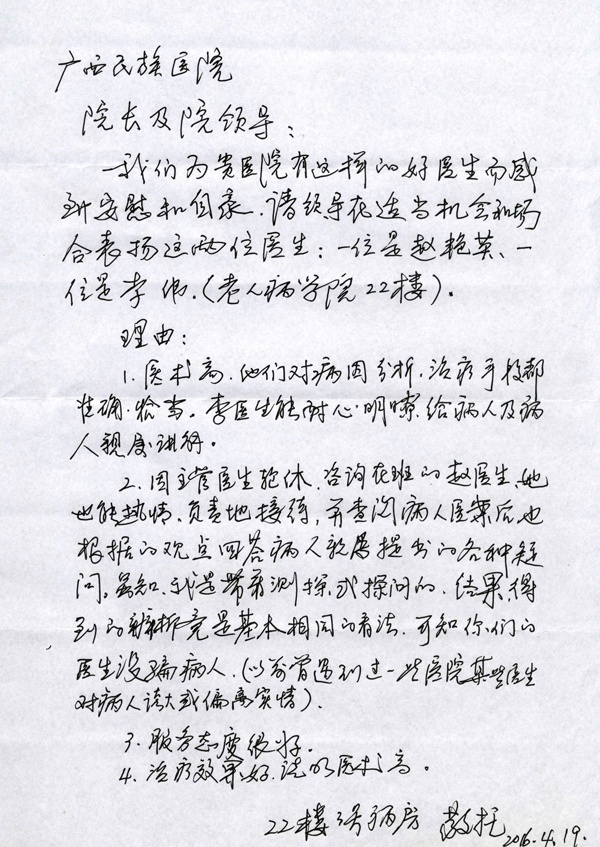 广西民族医院
院长及院领导：
我们为贵医院有这样的好医生而感
到安慰和自豪.请领导在适当机会和场
合表扬这两位医生：一位是赵艳英、一
位是李伟.(老人病学院22楼).
理由：
1.医术高.他们对病因分析.治疗手段都
准确.恰当。李医生能耐心.明嘹.给病人及病
人亲属讲解。
2.因主管医生轮休.咨询在班的赵医生.她
也能热情.负责地接待，并查阅病人医案后.也
根据的观点回答病人亲属提出的各种疑
问。虽知.我是带着测探式探问的.结果.得
到的辨析竟是基本相同的看法.可知你们的
医生没骗病人.(以前曾遇到过一些医院某些医生
对病人夸大或偏离实情).
3.服务态度很好。
4.治疗效果好.说明医术高。
22楼 病房 敬托
2016.4.19.